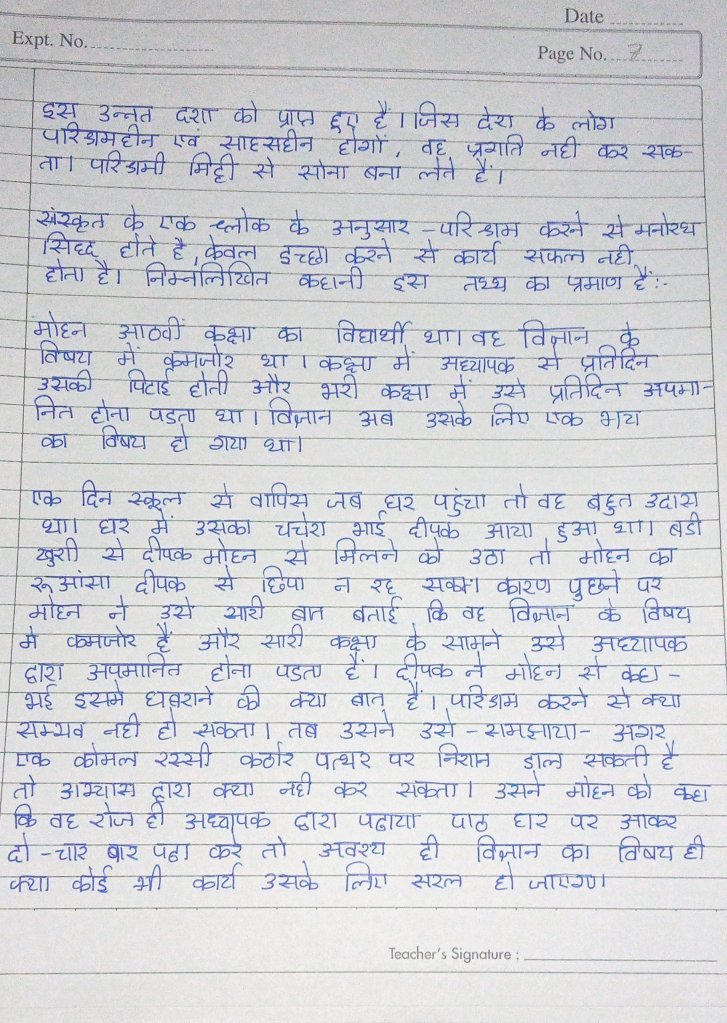 Date
Expt. No.
Page No. 7
इस उन्नत दशा को प्राप्त हुए हैं। जिस देश के लोग
परिश्रमहीन एवं साहसहीन होगों, वह प्रगति नही कर सक-
ता। परिश्रमी मिट्टी से सोना बना लेते हैं।
संस्कृत के एक श्लोक के अनुसार - परिश्रम करने से मनोरथ
सिद्ध होते है, केवल इच्छा करने से कार्य सफल नही
होता है। निम्नलिखित कहानी इस तथ्य का प्रमाण हैं:-
मोहन आठवीं कक्षा का विद्यार्थी था। वह विज्ञान के
विषय में कमजोर था। कक्षा में अध्यापक से प्रतिदिन
उसकी पिटाई होती और भरी कक्षा में उसे प्रतिदिन अपमा-
नित होना पडता था। विज्ञान अब उसके लिए एक भय
का विषय हो गया था।
एक दिन स्कूल से वापिस जब घर पहुंचा तो वह बहुत उदास
था। घर में उसका चचेरा भाई दीपक आया हुआ था। बडी
खुशी से दीपक मोहन से मिलने को उठा तो मोहन का
रूआंसा दीपक से छिपा न रह सका। कारण पुछने पर
मोहन ने उसे सारी बात बताई कि वह विज्ञान के विषय
में कमजोर हैं और सारी कक्षा के सामने उसे अध्यापक
द्वारा अपमानित होना पडता हैं। दीपक ने मोहन से कहा -
भई इसमे घबराने की क्या बात हैं। परिश्रम करने से क्या
सम्भव नही हो सकता। तब उसने उसे - समझाया - अगर
एक कोमल रस्सी कठोर पत्थर पर निशान डाल सकती है
तो अभ्यास द्वारा क्या नही कर सकता। उसने मोहन को कहा
कि वह रोज ही अध्यापक द्वारा पढाया पाठ घर पर आकर
दो-चार बार पढा करे तो अवश्य ही विज्ञान का विषय ही
क्या कोई भी कार्य उसके लिए सरल हो जाएगा।
Teacher's Signature :